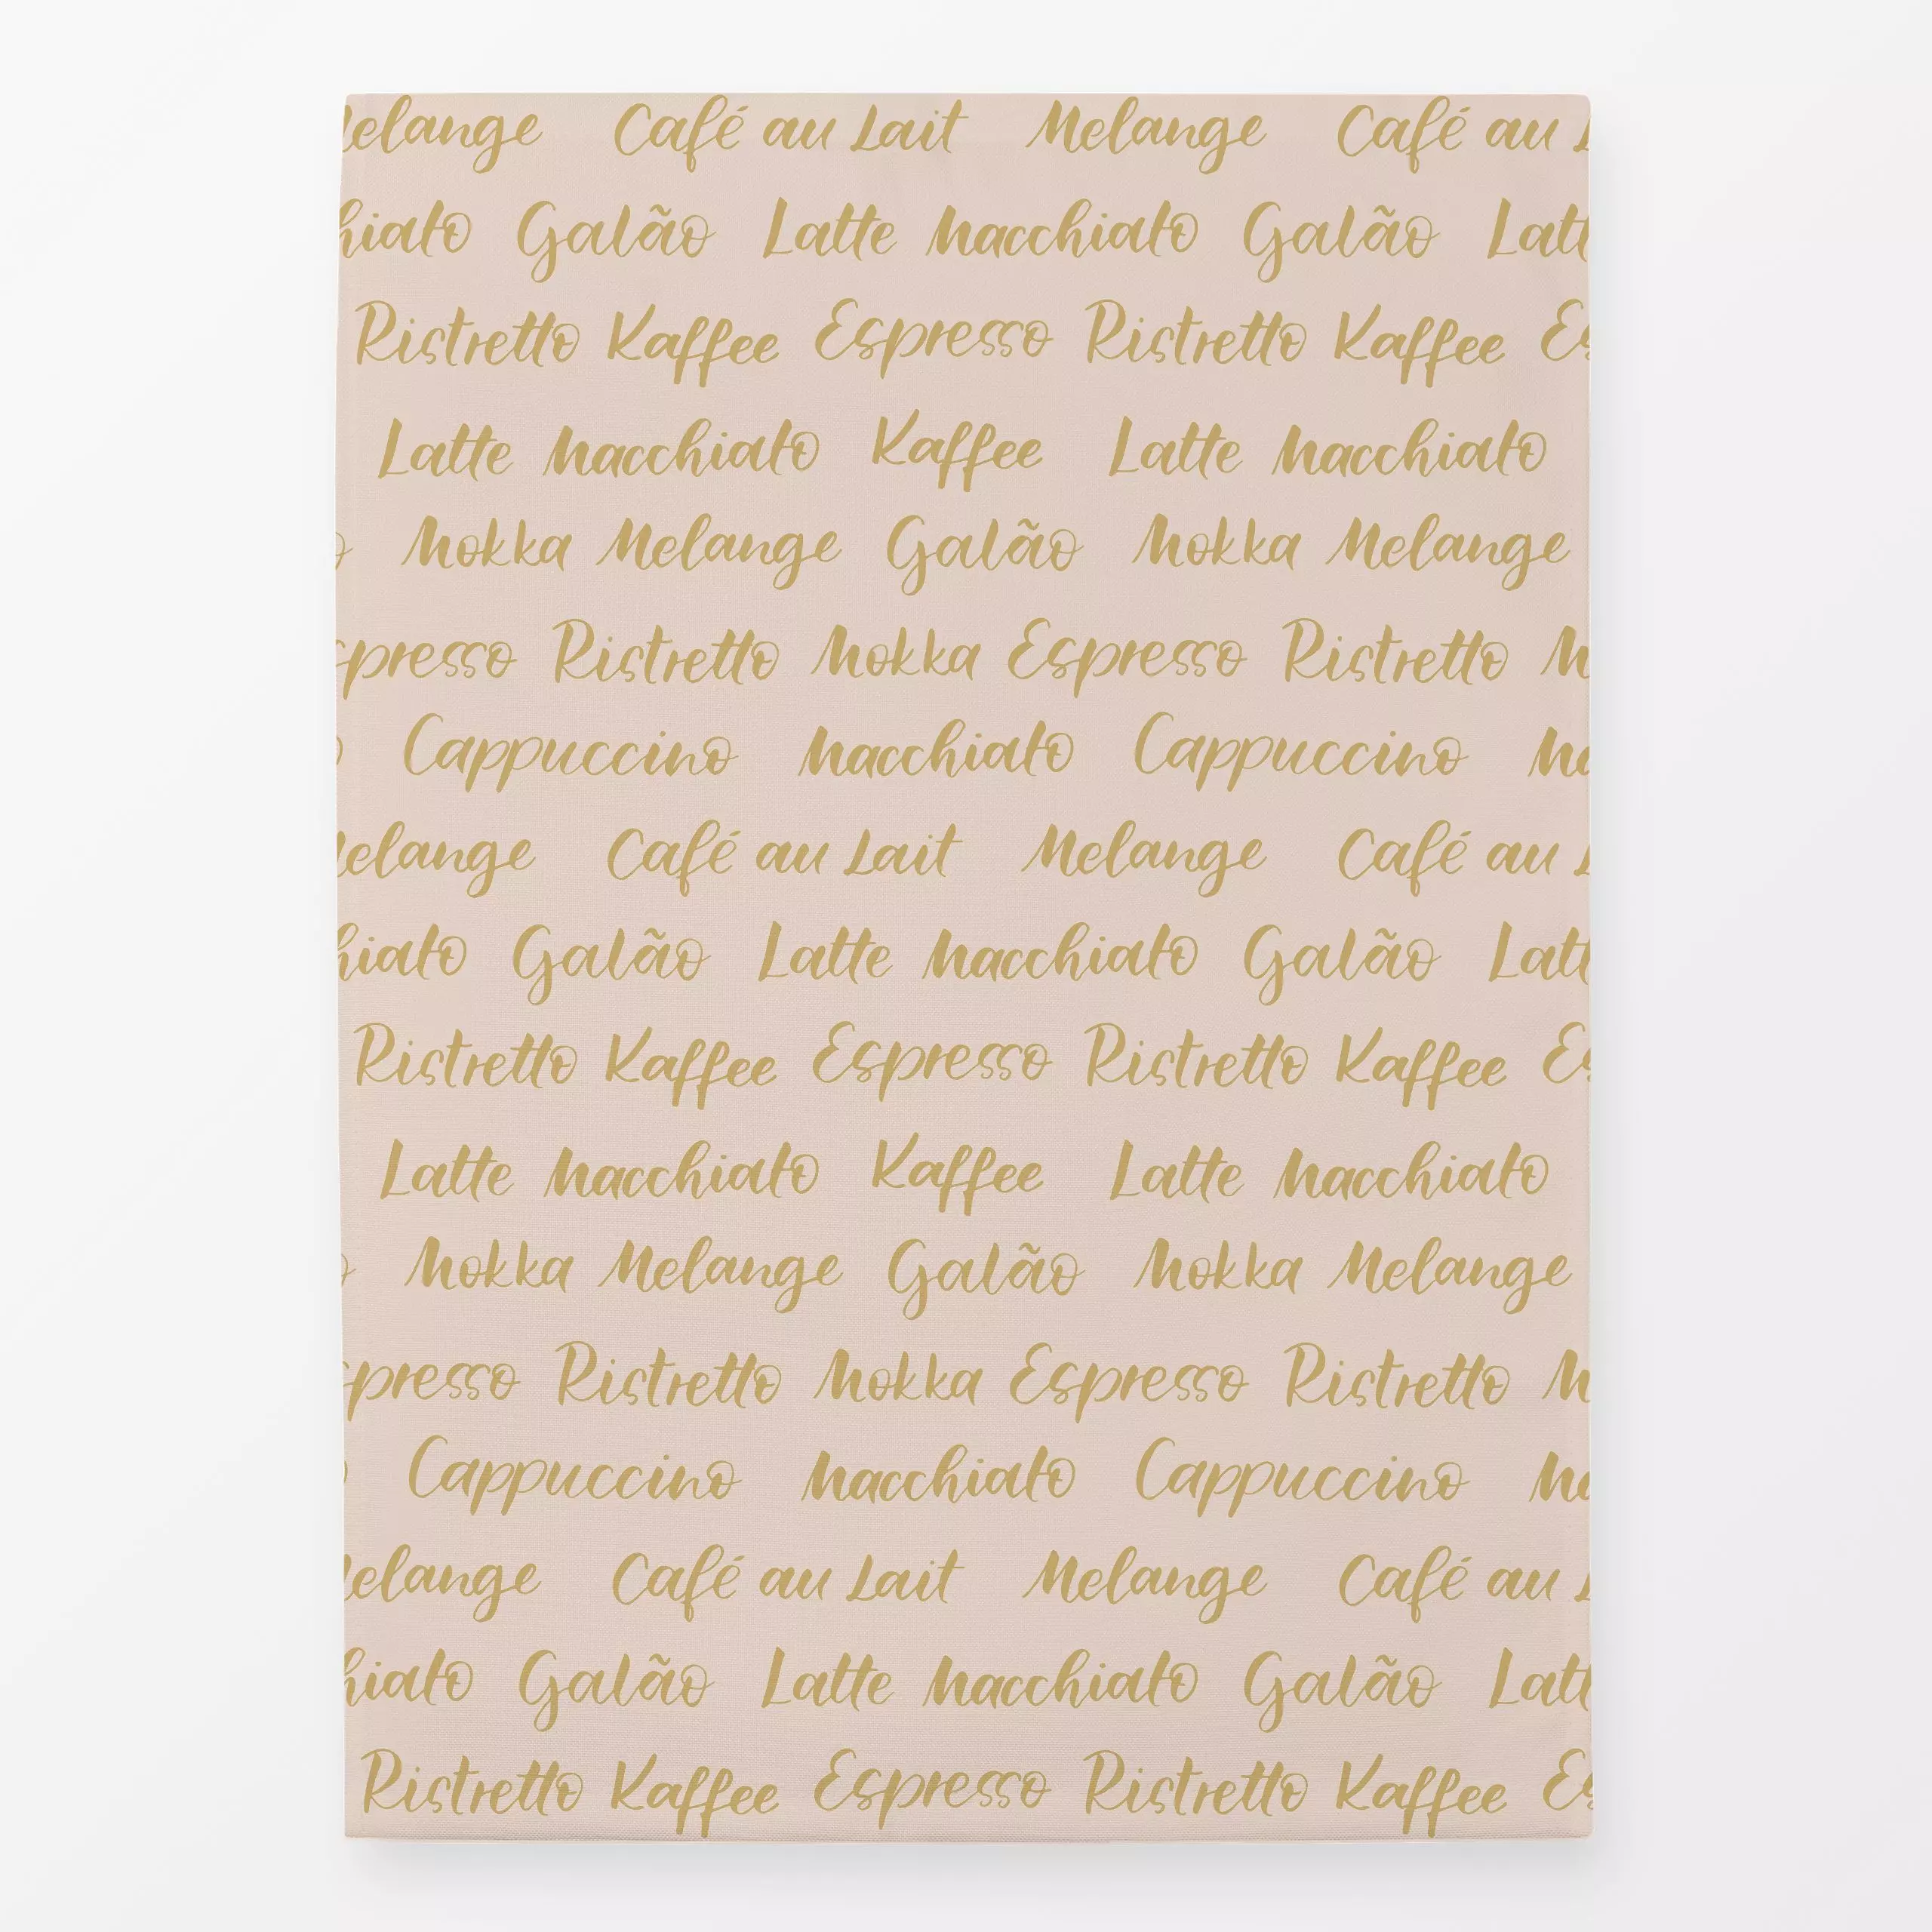 elange Café au Lait Melange Café au L
hiato Galão Latte Macchiato Galão Latt
Ristretto Kaffee Espresso Ristretto Kaffee Es
Latte Macchiato Kaffee Latte Macchiato
o Mokka Melange Galão Mokka Melange
spresso Ristretto Mokka Espresso Ristretto M
o Cappuccino Macchiato Cappuccino Ma
Melange Café au Lait Melange Café au L
hiato Galão Latte Macchiato Galão Latt
Ristretto Kaffee Espresso Ristretto Kaffee Es
Latte Macchiato Kaffee Latte Macchiato
o Mokka Melange Galão Mokka Melange
spresso Ristretto Mokka Espresso Ristretto M
o Cappuccino Macchiato Cappuccino Ma
elange Café au Lait Melange Café au L
hiato Galão Latte Macchiato Galão Latt
Ristretto Kaffee Espresso Ristretto Kaffee Es